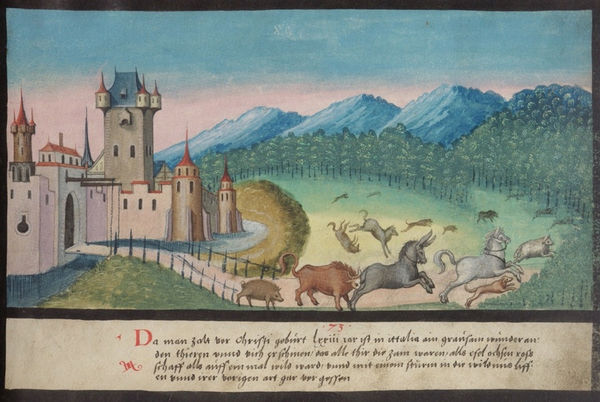 73
Da man zalt vor Chrissti geburt lxxiii iar ist in ittalia ain graüsam wünder an
den thieren vnnd vich erschinen das alle thir die zam waren als esel ochsen ross
schaff als auff ein mal wild ward vnnd mit einem stürm in die wildnus liff
en vnnd irer vorigen art gar vergossen